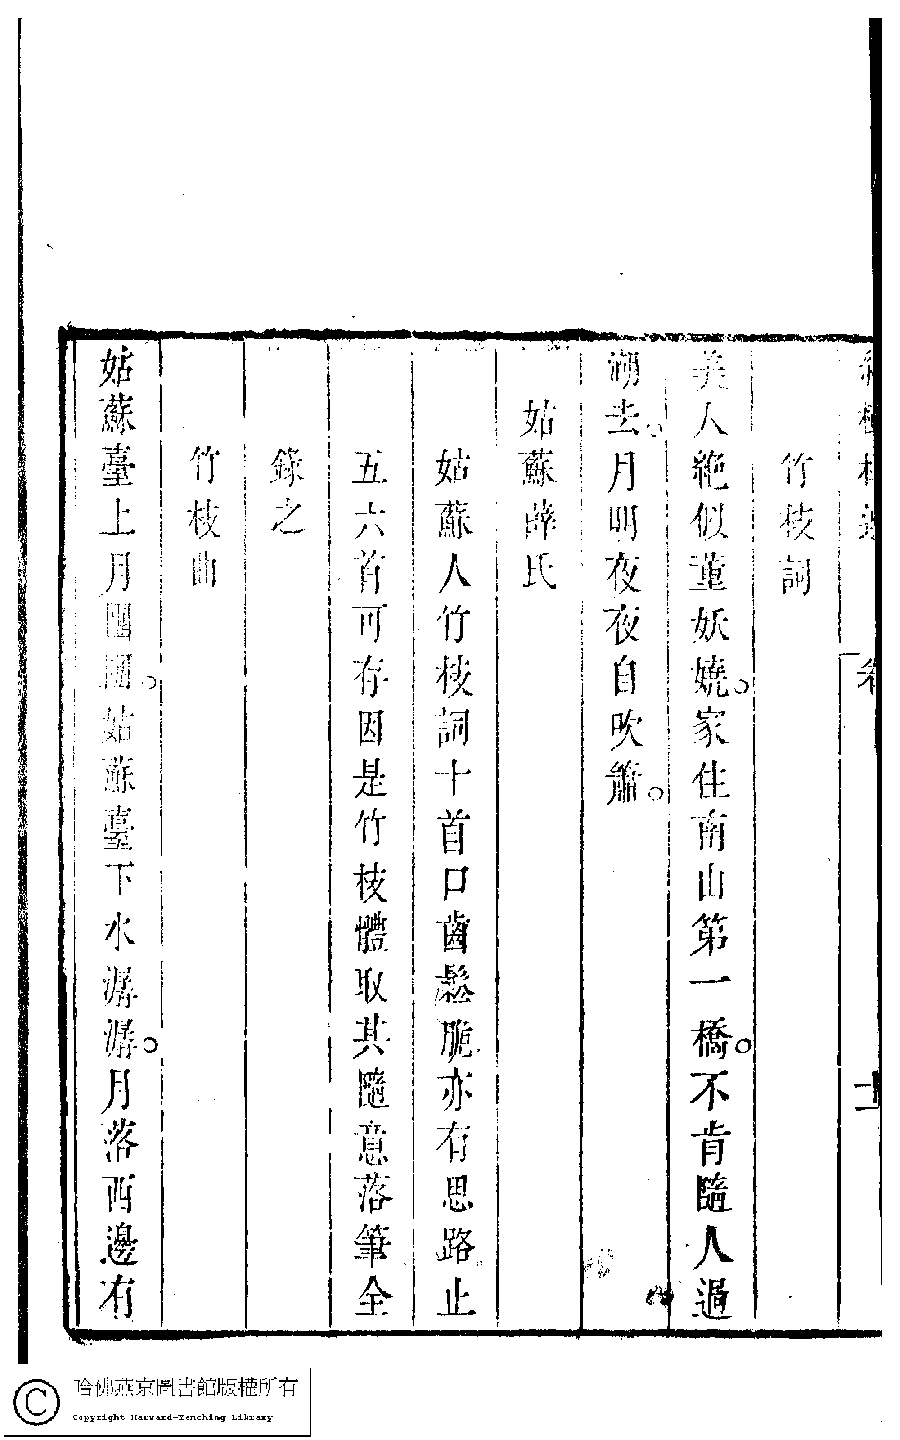 竹枝詞
美人絶似董妖嬈家住南山第一橋不肯隨人過
湖去月明夜夜自吹簫
姑蘇薛氏
姑蘇人竹枝詞十首口齒鬆脆亦有思路止
五六首可存因是竹枝體取其隨意落筆全
錄之
竹枝曲
姑蘇臺上月團團姑蘇臺下水潺潺月落西邊有
哈佛燕京圖書館版權所有
Copyright Harvard-Yenching Library